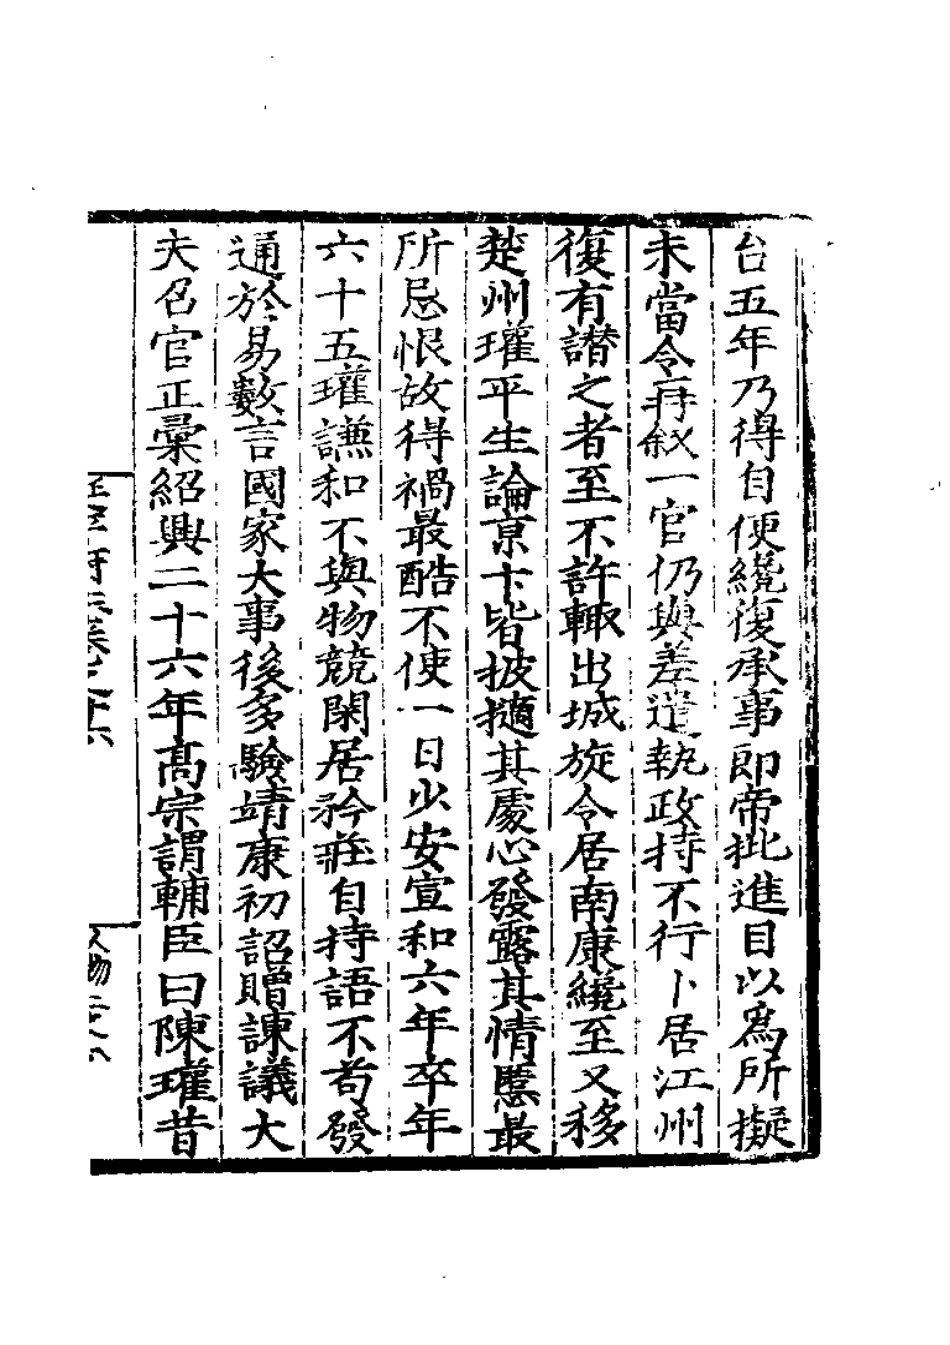 台五年乃得自便纔復承事郎帝批進目以爲所擬
未當令再叙一官仍與差遣執政持不行卜居江州
復有譖之者至不許輙出城旋令居南康纔至又移
楚州瓘平生論京卞皆披擿其處心發露其情慝最
所忌恨故得禍最酷不使一日少安宣和六年卒年
六十五瓘謙和不與物競閑居矜莊自持語不苟發
通於易數言國家大事後多驗靖康初詔贈諫議大
夫召官正彙紹興二十六年高宗謂輔臣曰陳瓘昔